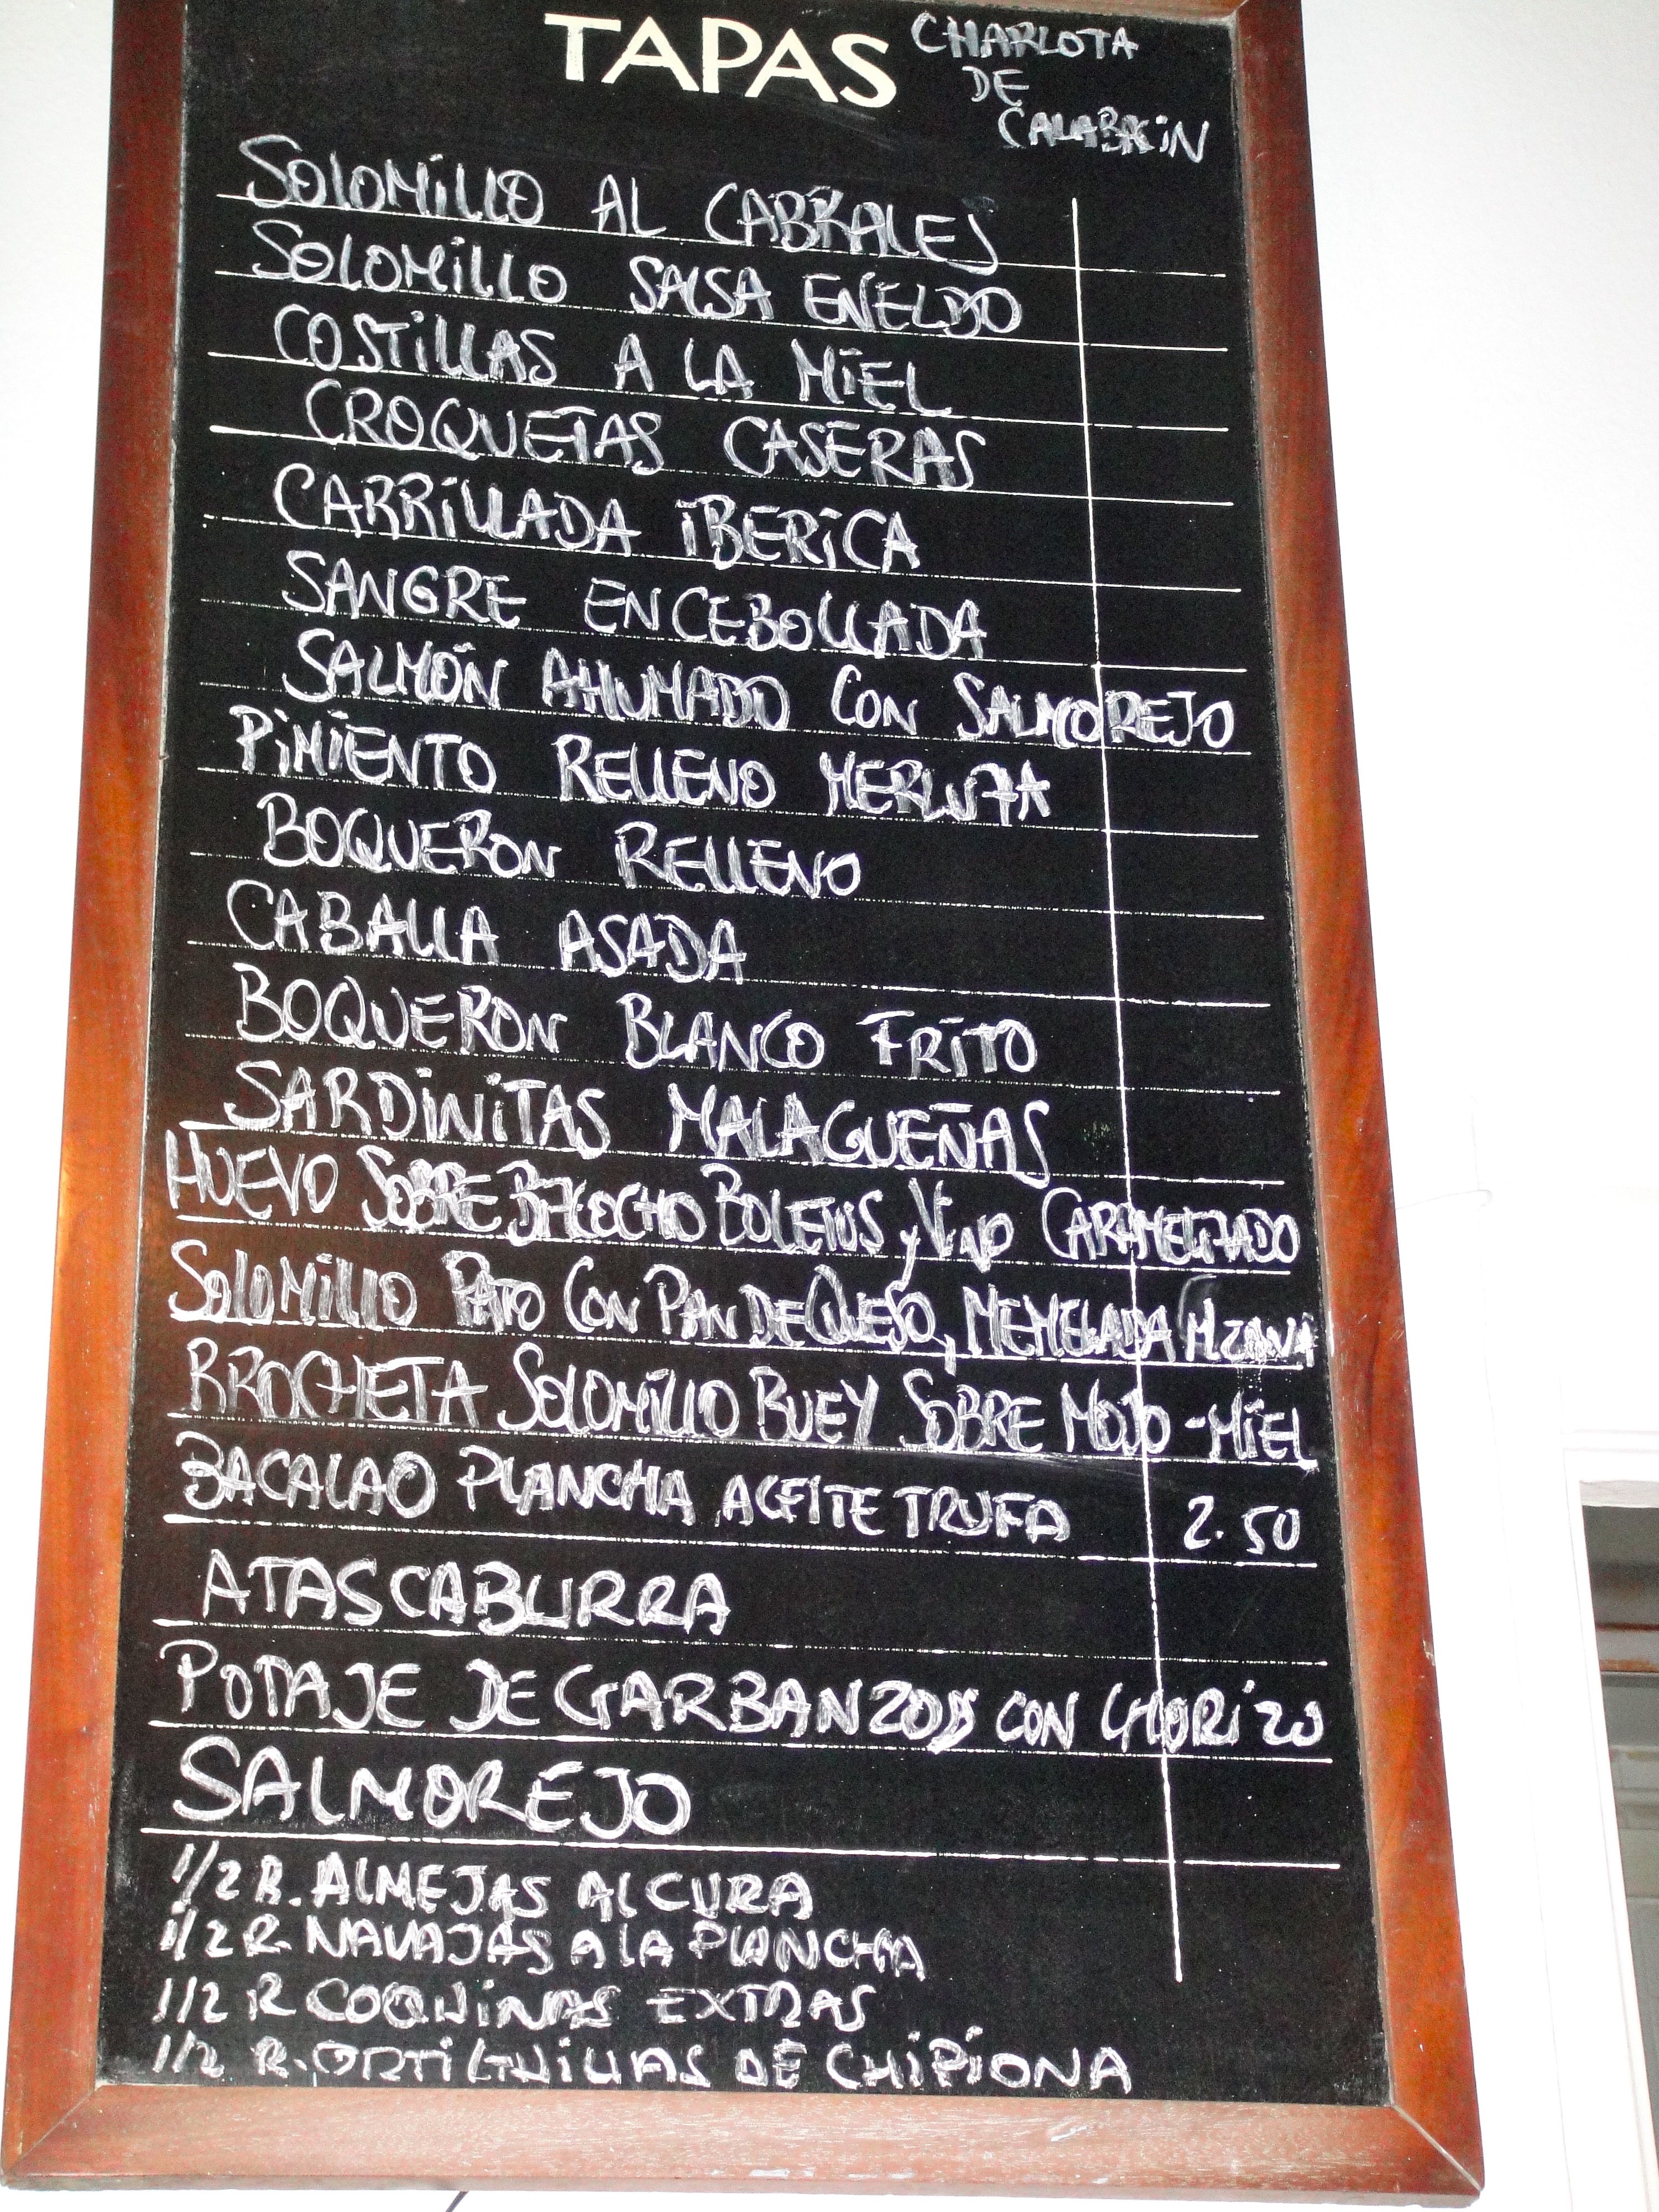 TAPAS
CHARLOTA
DE
CALABACiN
SOLOMiLLO AL CABRALES
SOLOMiLLO SALSA ENELDO
COSTiLLAS A LA MiEL
CROQUETAS CASERAS
CARRiLLADA iBERiCA
SANGRE ENCEBOLLADA
SALMÓN AHUMADO CON SALMOREJO
PiMiENTO RELLENO MERLUZA
BOQUERON RELLENO
CABALLA ASADA
BOQUERON BLANCO FRiTO
SARDiNiTAS MALAGUEÑAS
HUEVO SOBRE BIZCOCHO BOLETUS y ViNO CARAMELIZADO
SOLOMiLLO PATO CON PAN DE QUESO, MEMELADA MZANA
BROCHETA SOLOMiLLO BUEY SOBRE MOJO-MiEL
BACALAO PLANCHA ACEITE TRUFA 2.50
ATASCABURRA
POTAJE DE GARBANZOS CON CHORiZO
SALMOREJO
1/2 R. ALMEJAS AL CURA
1/2 R NAVAJAS A LA PLANCHA
1/2 R COQUiNAS EXTRAS
1/2 R. ORTiGUiLLAS DE CHiPiONA